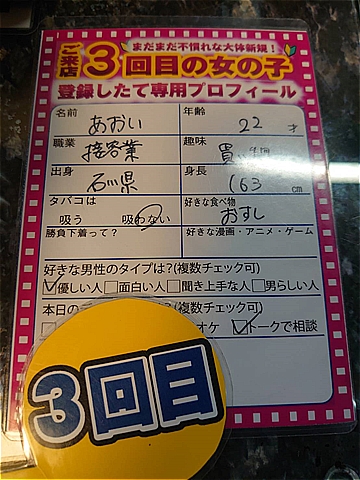 まだまだ不慣れな大体新規！
ご来店3回目の女の子
登録したて専用プロフィール
名前 あおい 年齢 22才
職業 接客業 趣味 買い物
出身 石川県 身長 163cm
タバコは 好きな食べ物
吸う 吸わない おすし
勝負下着って？ 好きな漫画・アニメ・ゲーム
好きな男性のタイプは？(複数チェック可)
優しい人 面白い人 聞き上手な人 男らしい人
本日の 複数チェック可)
オケ トークで相談
3回目